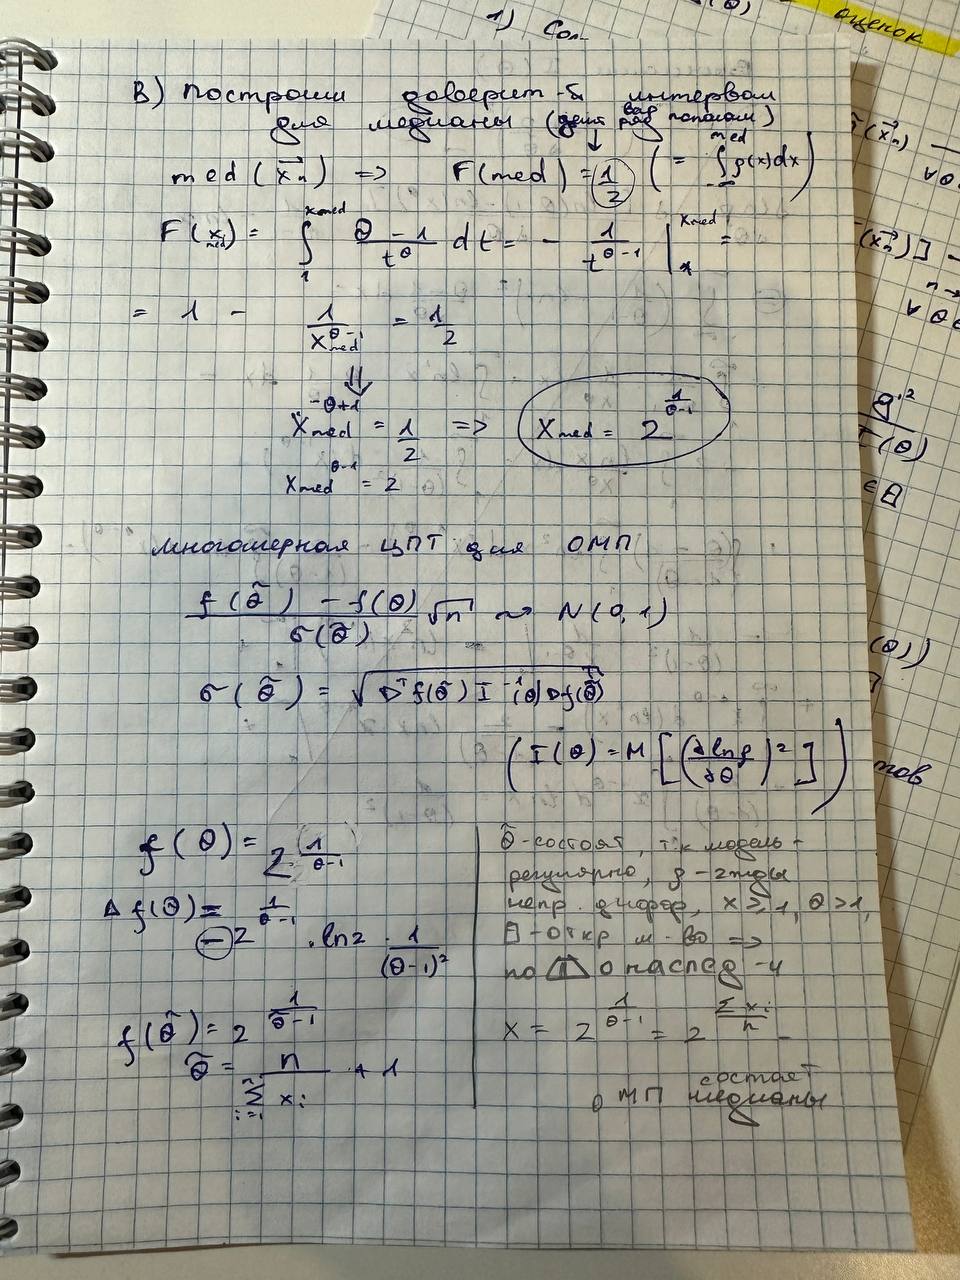 1) Сол
оценок
В) Построим доверит-й интервал
для медианы (
med(x⃗n) => F(med) = 1/2 (= ∫_{-∞}^{med} p(x)dx)
F(x_med) = ∫_1^{x med} (θ-1)/t^θ dt = - 1/t^{θ-1} |^{x med} =
= 1 - 1/x_med^{θ-1} = 1/2
⇓
x_med^{-θ+1} = 1/2 => x_med = 2^{1/(θ-1)}
x_med^{θ-1} = 2
многомерная ЦПТ для ОМП
(f(θ̃) - f(θ))/σ(θ̃) √n ~> N(0,1)
σ(θ̃) = √(∇ᵀf(θ̃) I⁻¹(θ) ∇f(θ̃))
(I(θ) = M[(∂lnp/∂θ)²])
f(θ) = 2^{1/(θ-1)}
Δf(θ) = -2^{1/(θ-1)} · ln2 · 1/(θ-1)²
f(θ̃) = 2^{1/(θ̃-1)}
θ̃ = n/(∑_{i=1}^{n} xi) + 1
θ̃-состоят, т.к модель -
регулярно, p - 2жды
непр. диффер, x ≥ 1, θ > 1,
Θ - откр м-во =>
по о наслед-и
x = 2^{1/(θ-1)} = 2^{∑xi/n} -
состоят
ОМП медианы
(x⃗n)
(x⃗n)]
g'²/I(θ)
∈ Θ
(θ))
тов